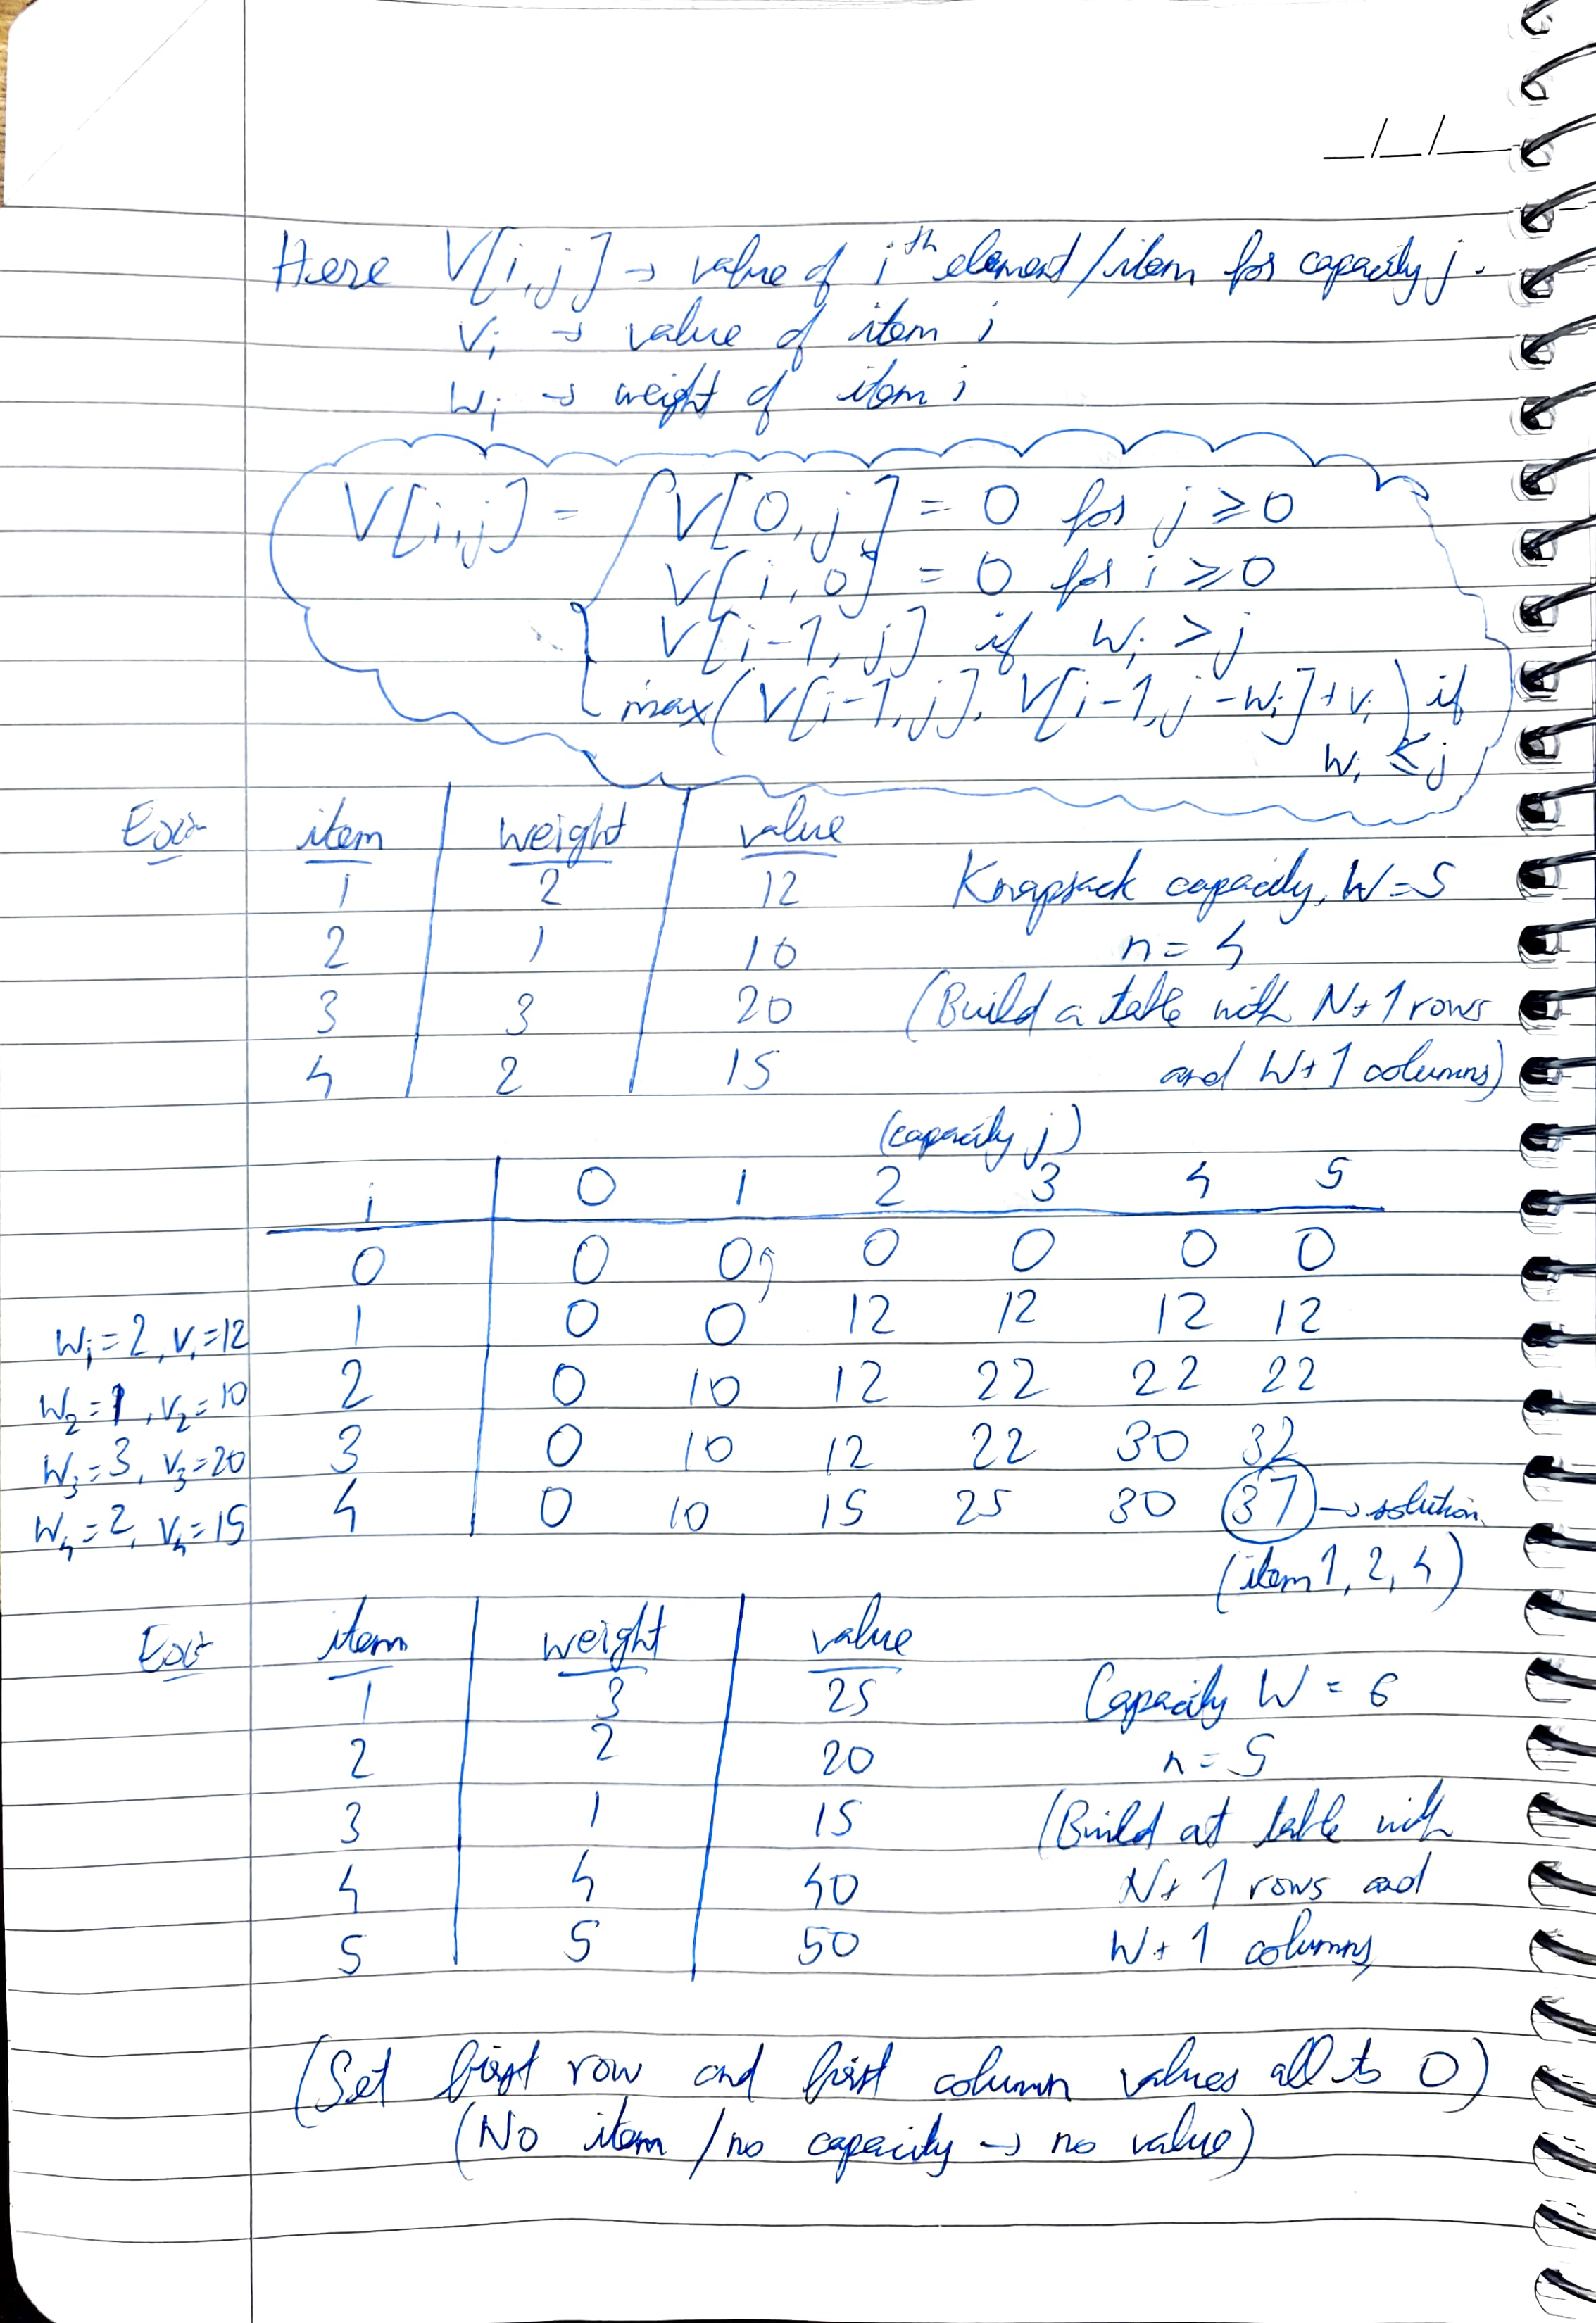 _/_/__
Here V[i,j] → value of ith element/item for capacity j.
vi → value of item i
wi → weight of item i
V[i,j] = { V[0,j] = 0 for j ≥ 0
V[i,0] = 0 for i ≥ 0
V[i-1,j] if wi > j
max(V[i-1,j], V[i-1,j-wi]+vi) if
wi ≤ j
Ex:- item weight value
1 2 12 Knapsack capacity, W=5
2 1 10 n=4
3 3 20 (Build a table with N+1 rows
4 2 15 and W+1 columns)
(capacity j)
i 0 1 2 3 4 5
0 0 0 0 0 0 0
w1=2, v1=12 1 0 0 12 12 12 12
w2=1, v2=10 2 0 10 12 22 22 22
w3=3, v3=20 3 0 10 12 22 30 32
w4=2, v4=15 4 0 10 15 25 30 37 → solution
(item 1, 2, 4)
Ex:- item weight value
1 3 25 Capacity W = 6
2 2 20 n=5
3 1 15 (Build at table with
4 4 40 N+1 rows and
5 5 50 W+1 columns)
(Set first row and first column values all to 0)
(No item/no capacity → no value)